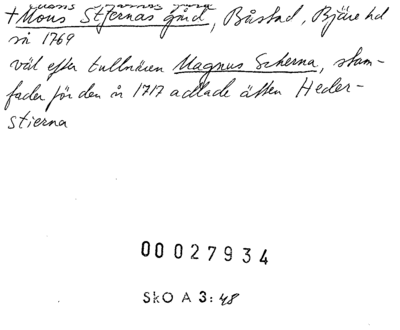 +Mons Stjernas gård, Båstad, Bjäre hd
sii 1769
väl efter tullnären Magnus Scherna, stam-
fader för den år 1717 adlade ätten Heder-
stierna
00027934
SkO A 3:48